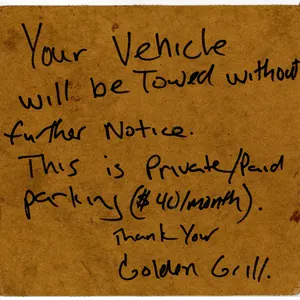 Your Vehicle
will be Towed without
further Notice.
This is Private/Paid
parking ($40/month).
Thank Your
Golden Grill.